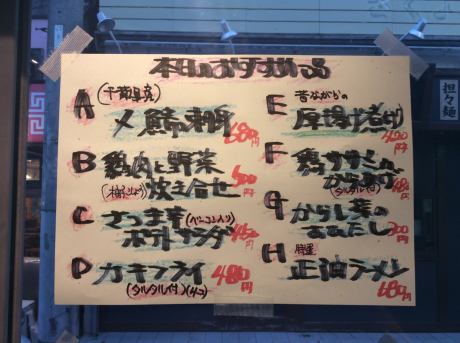 本日のおすすめ品
A (千葉県産)
〆鯵刺身
680円
B 鶏肉と野菜
(柚子こしょう) 炊き合せ
500円
C さつま芋 (ベーコン入り)
ポテトサラダ
450円
D カキフライ
(タルタル付)(4コ)
480円
E 昔ながらの
厚揚げ煮付
400円
F 鶏ササミ
(タルタル付)
480円
G からし菜の
おひたし
300円
H 特選
正油ラーメン
680円
担々麺